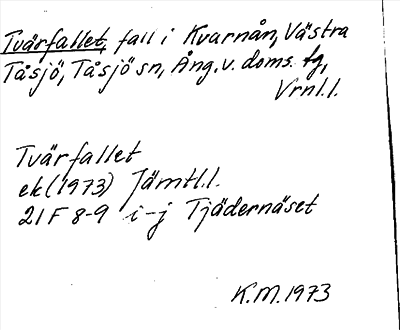 Tvärfallet, fall i Kvarnån, Västra
Tåsjö, Tåsjö sn, Ång. v. doms. tg,
Vrnl. l.
Tvärfallet
ek (1973) Jämtl. l.
21 F 8-9 i-j Tjädernäset
K. M. 1973